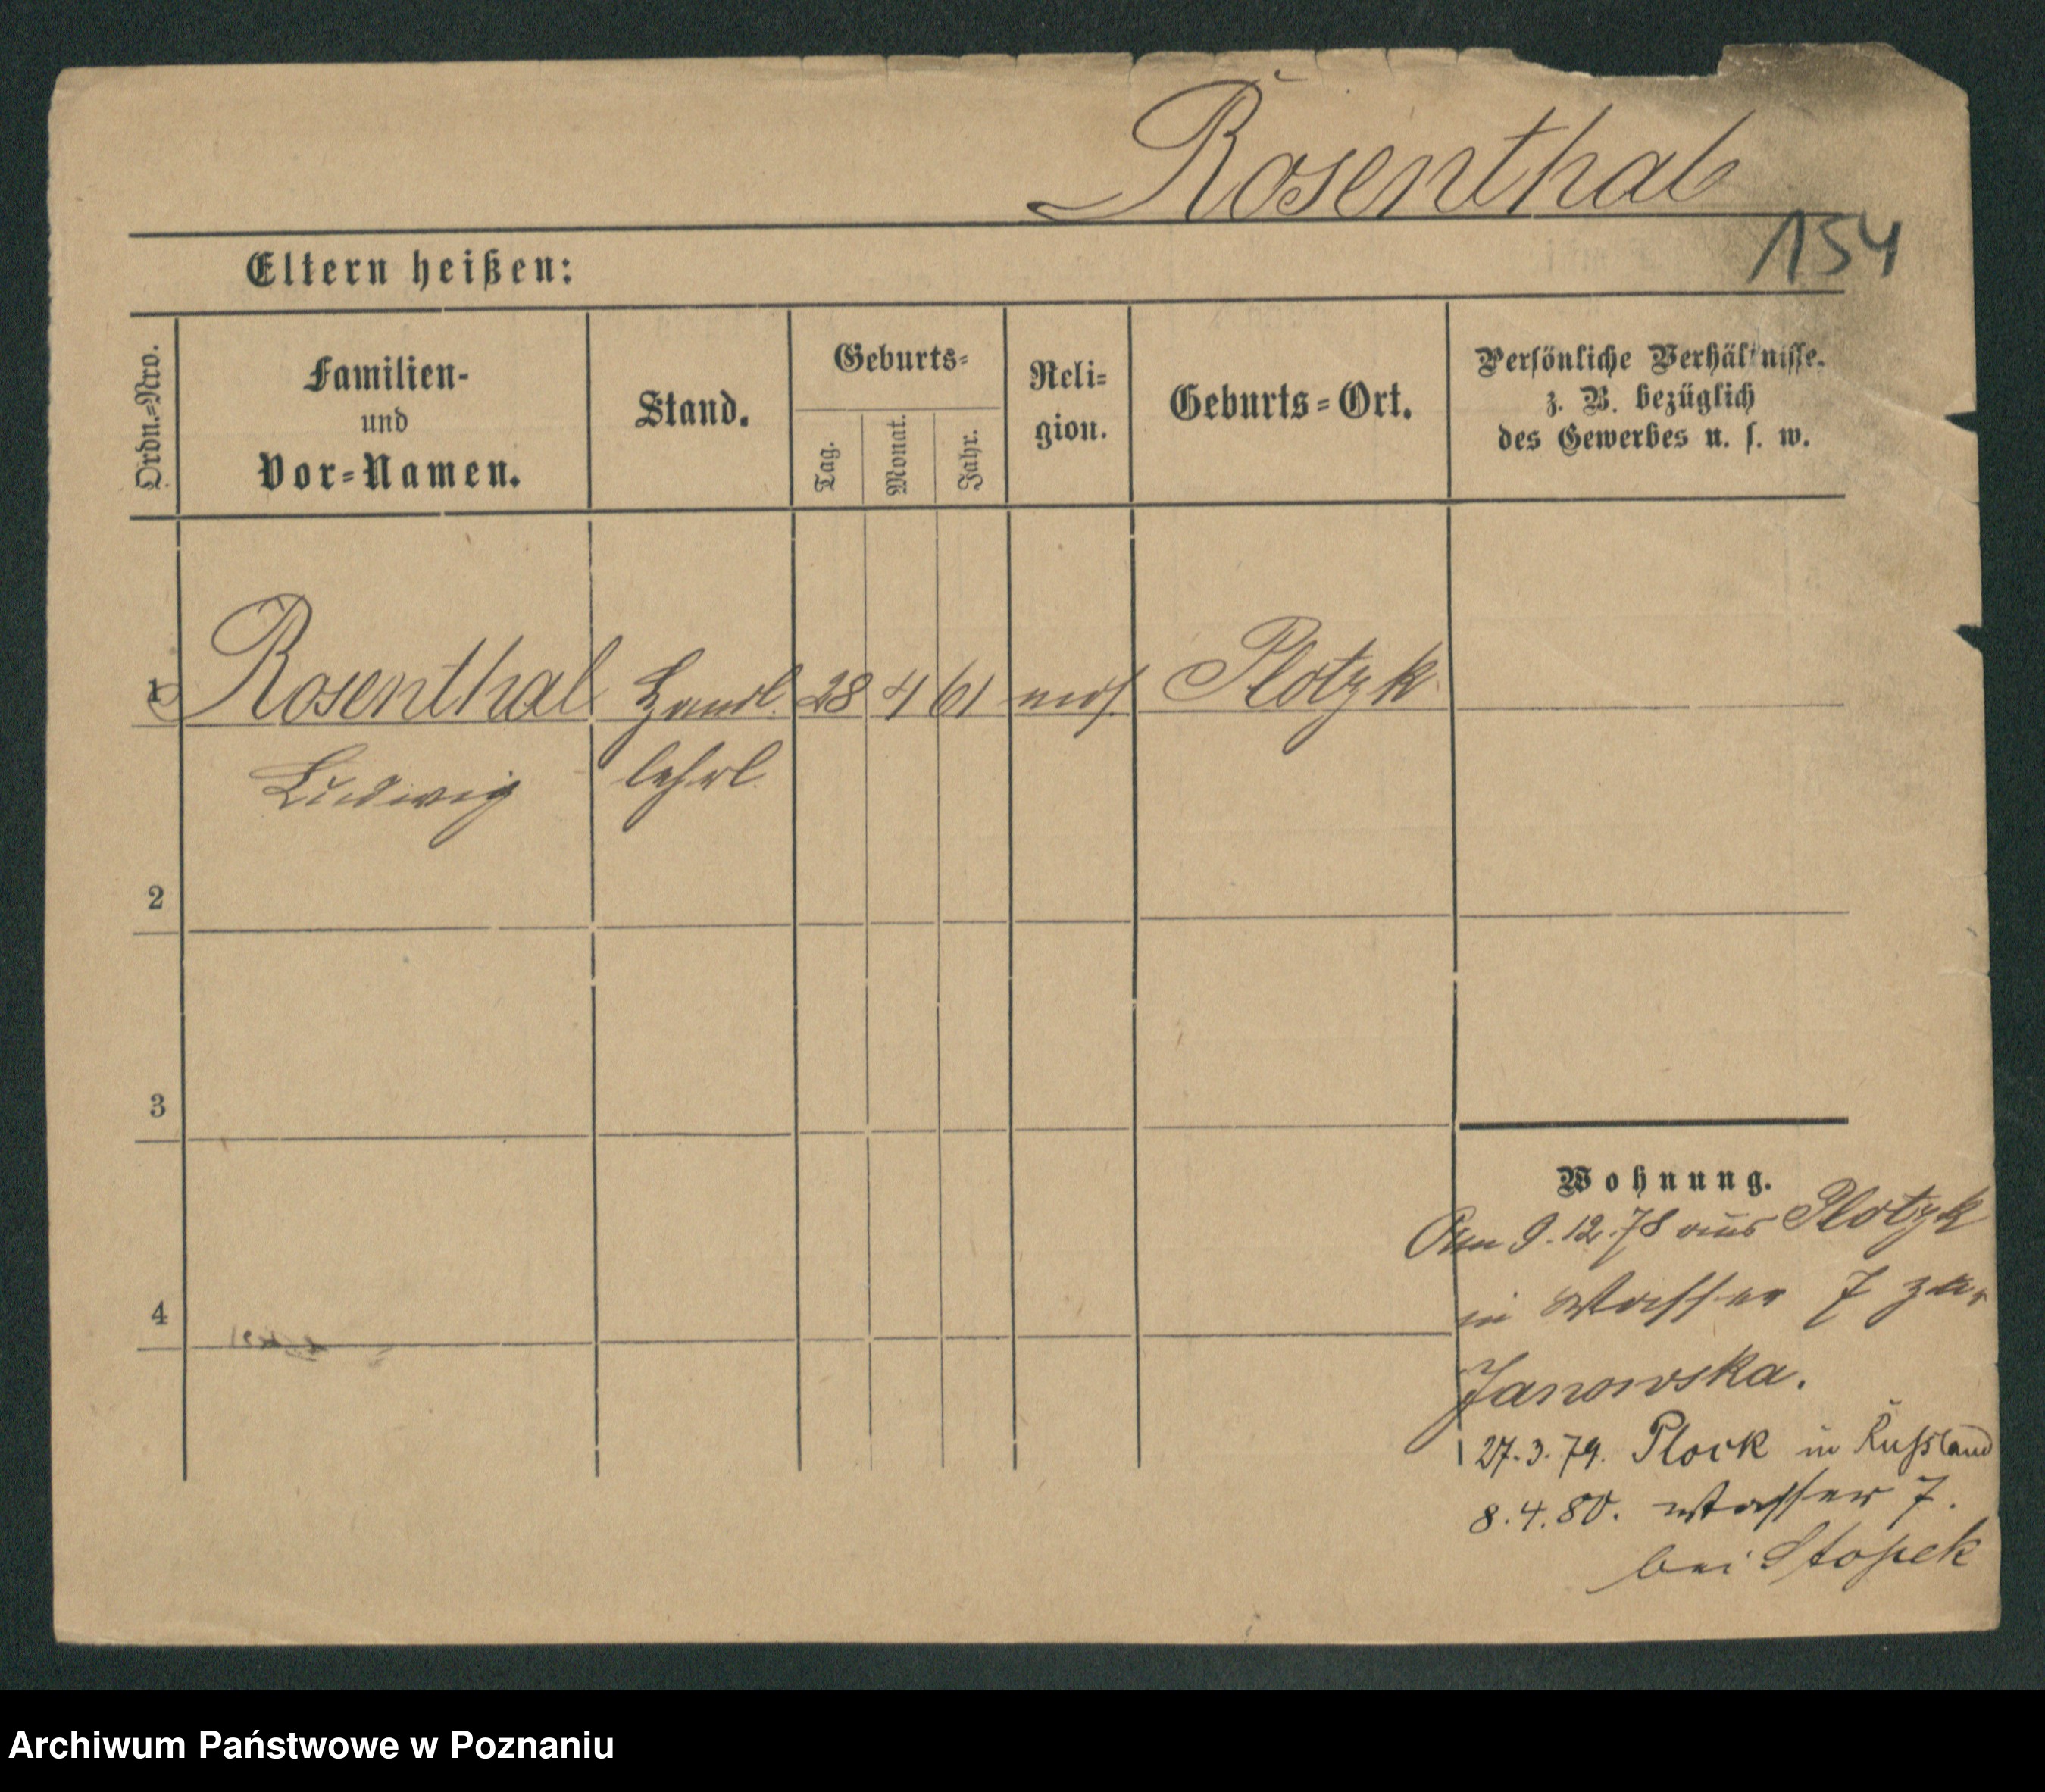 Rosenthal
154
Eltern heißen:
Ordn.=Nro.
Familien-
und
Vor=Namen.
Stand.
Geburts=
Tag.
Monat.
Jahr.
Reli=
gion.
Geburts=Ort.
Persönliche Verhältnisse.
z. B. bezüglich
des Gewerbes u. s. w.
1 Rosenthal Handl. 28 4 61 mos. Plotzk
Ludwig lehrl.
2
3
4
Wohnung.
Am 9.12.78 aus Plotzk
in Wasser 7 zur
Janowska.
27.3.79. Plock in Rußland
8.4.80. Wasser 7.
bei Stopek
Archiwum Państwowe w Poznaniu